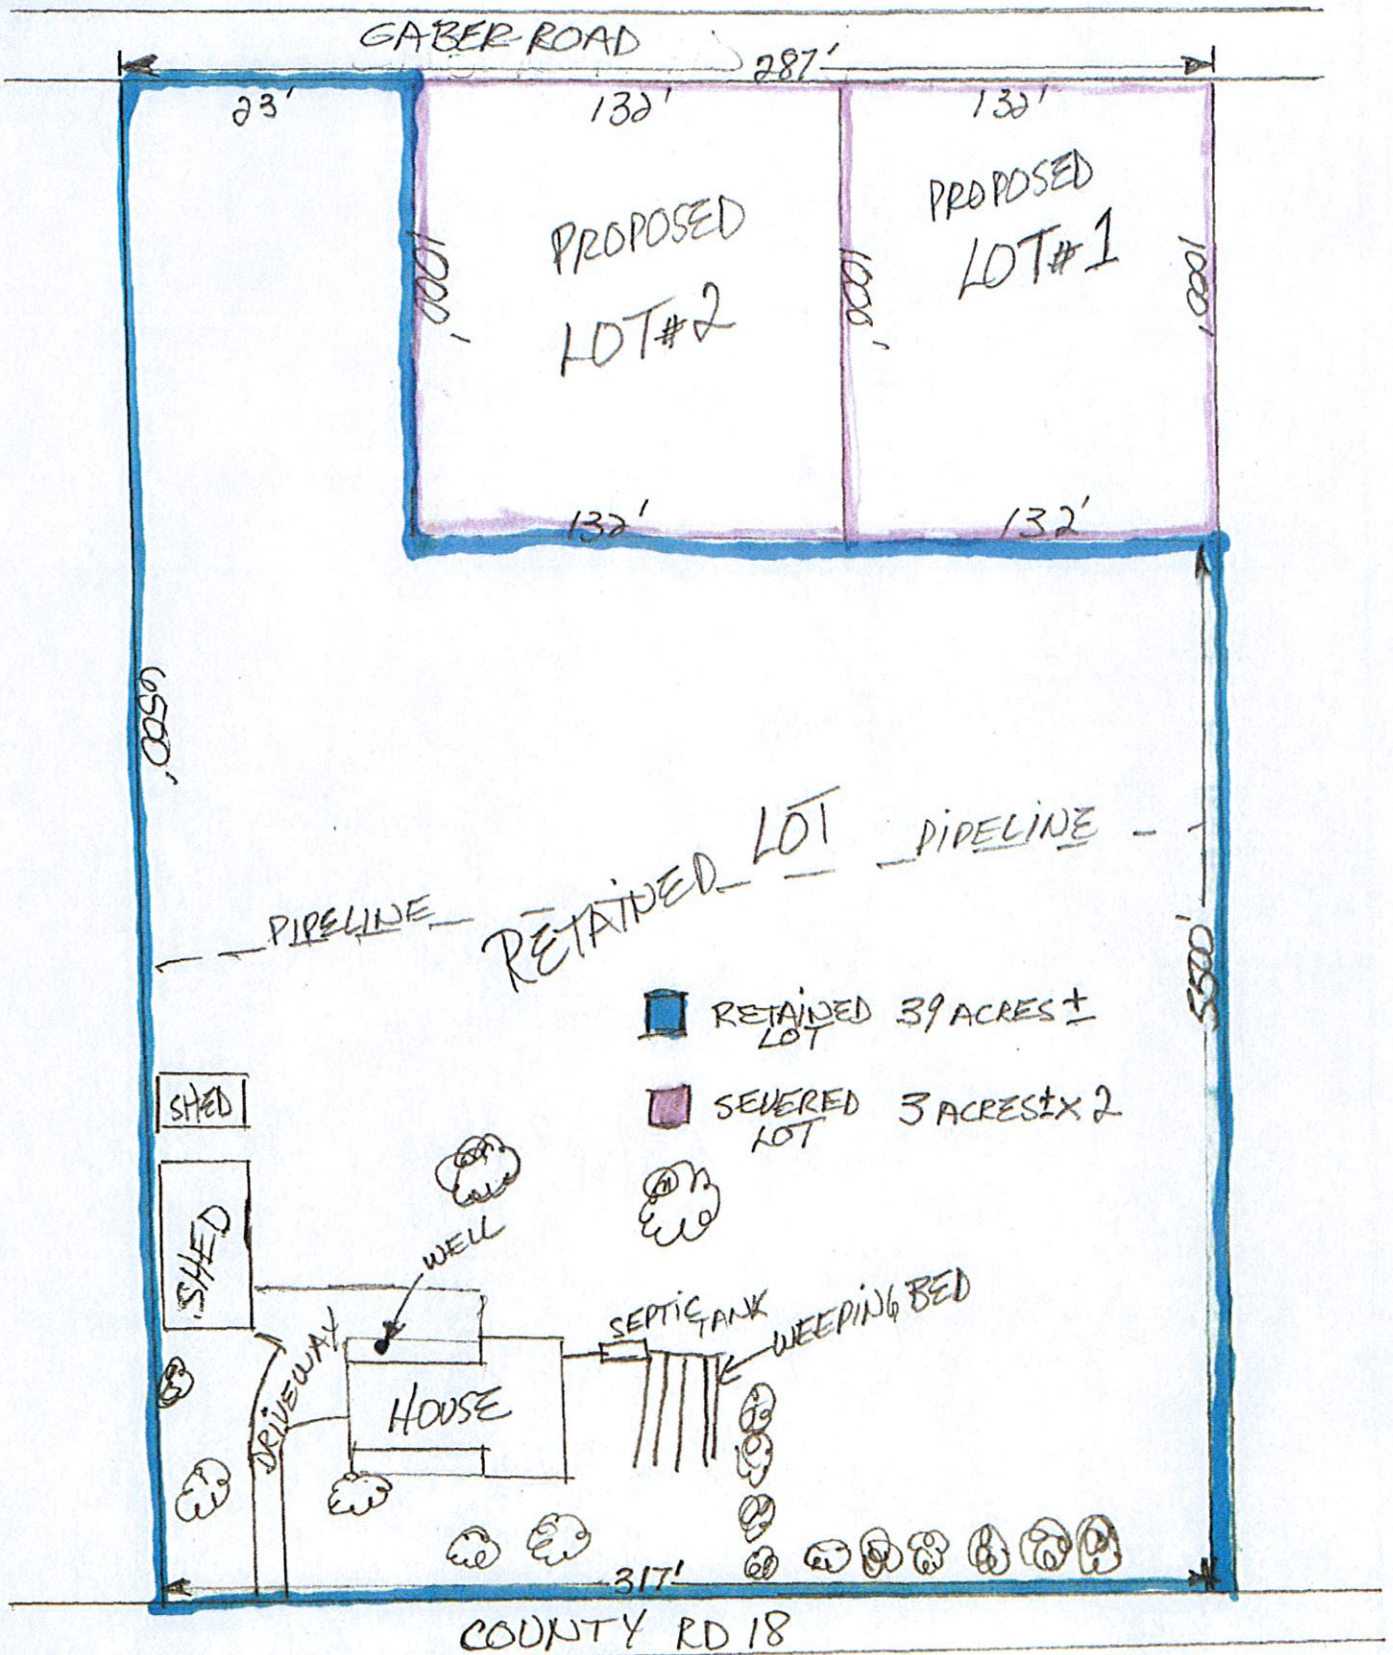 GABER ROAD
287'
23'
132'
132'
PROPOSED
LOT#2
PROPOSED
LOT#1
1000'
1000'
1000'
132'
132'
6500'
5500'
PIPELINE
RETAINED LOT
PIPELINE
RETAINED LOT 39 ACRES ±
SEVERED LOT 3 ACRES± X 2
SHED
SHED
WELL
DRIVEWAY
HOUSE
SEPTIC TANK
WEEPING BED
317'
COUNTY RD 18